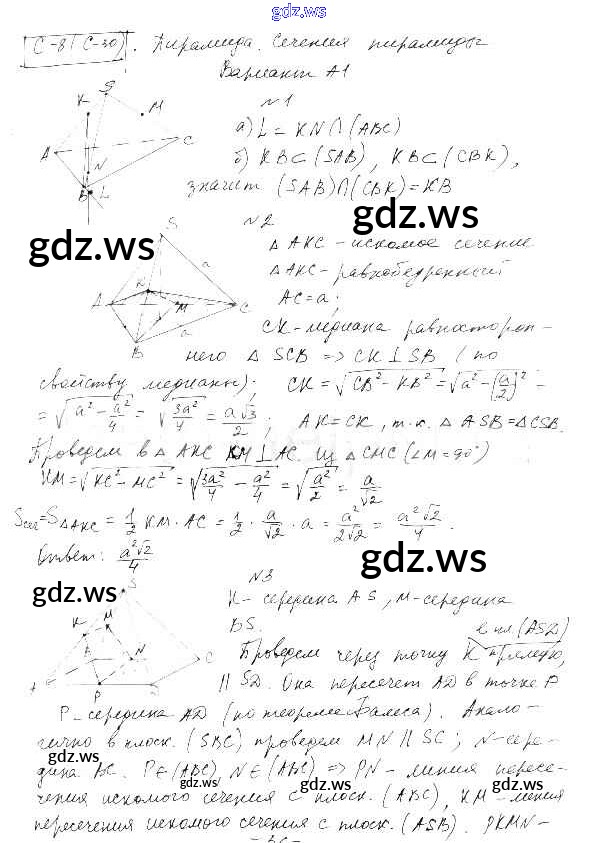 gdz.ws
С-8 (С-30). Пирамида. Сечения пирамиды
Вариант А1
S
K
M
A
C
N
B
L
№1
а) L = KN ∩ (ABC)
б) KB ⊂ (SAB), KB ⊂ (CBK),
значит (SAB) ∩ (CBK) = KB
gdz.ws
gdz.ws
№2
S
K
a
A
M
C
a
B
△AKC - искомое сечение
△AKC - равнобедренный
AC = a;
CK - медиана равносторон-
него △SCB => CK ⊥ SB (по
свойству медианы); CK = √(CB² - KB²) = √(a² - (a/2)²) =
= √(a² - a²/4) = √(3a²/4) = a√3/2; AK = CK, т.к. △ASB = △CSB.
Проведем в △AKC KM ⊥ AC. Из △CMC (∠M = 90°)
KM = √(KC² - MC²) = √(3a²/4 - a²/4) = √(a²/2) = a/√2
Sсеч = S△AKC = 1/2 KM · AC = 1/2 · a/√2 · a = a²/2√2 = a²√2/4.
Ответ: a²√2/4
gdz.ws
gdz.ws
№3
S
K
M
N
C
A
P
K - середина AS, M - середина
BS.
в пл. (ASD)
Проведем через точку K прямую,
|| SD. Она пересечет AD в точке P
P - середина AD (по теореме Фалеса). Анало-
гично в плоск. (SBC) проведем MN || SC; N - сере-
дина BC. P ∈ (ABC), N ∈ (ABC) => PN - линия пересе-
gdz.ws
gdz.ws
чения искомого сечения с плоск. (ABC), KM - линия
пересечения искомого сечения с плоск. (ASB). PKMN -